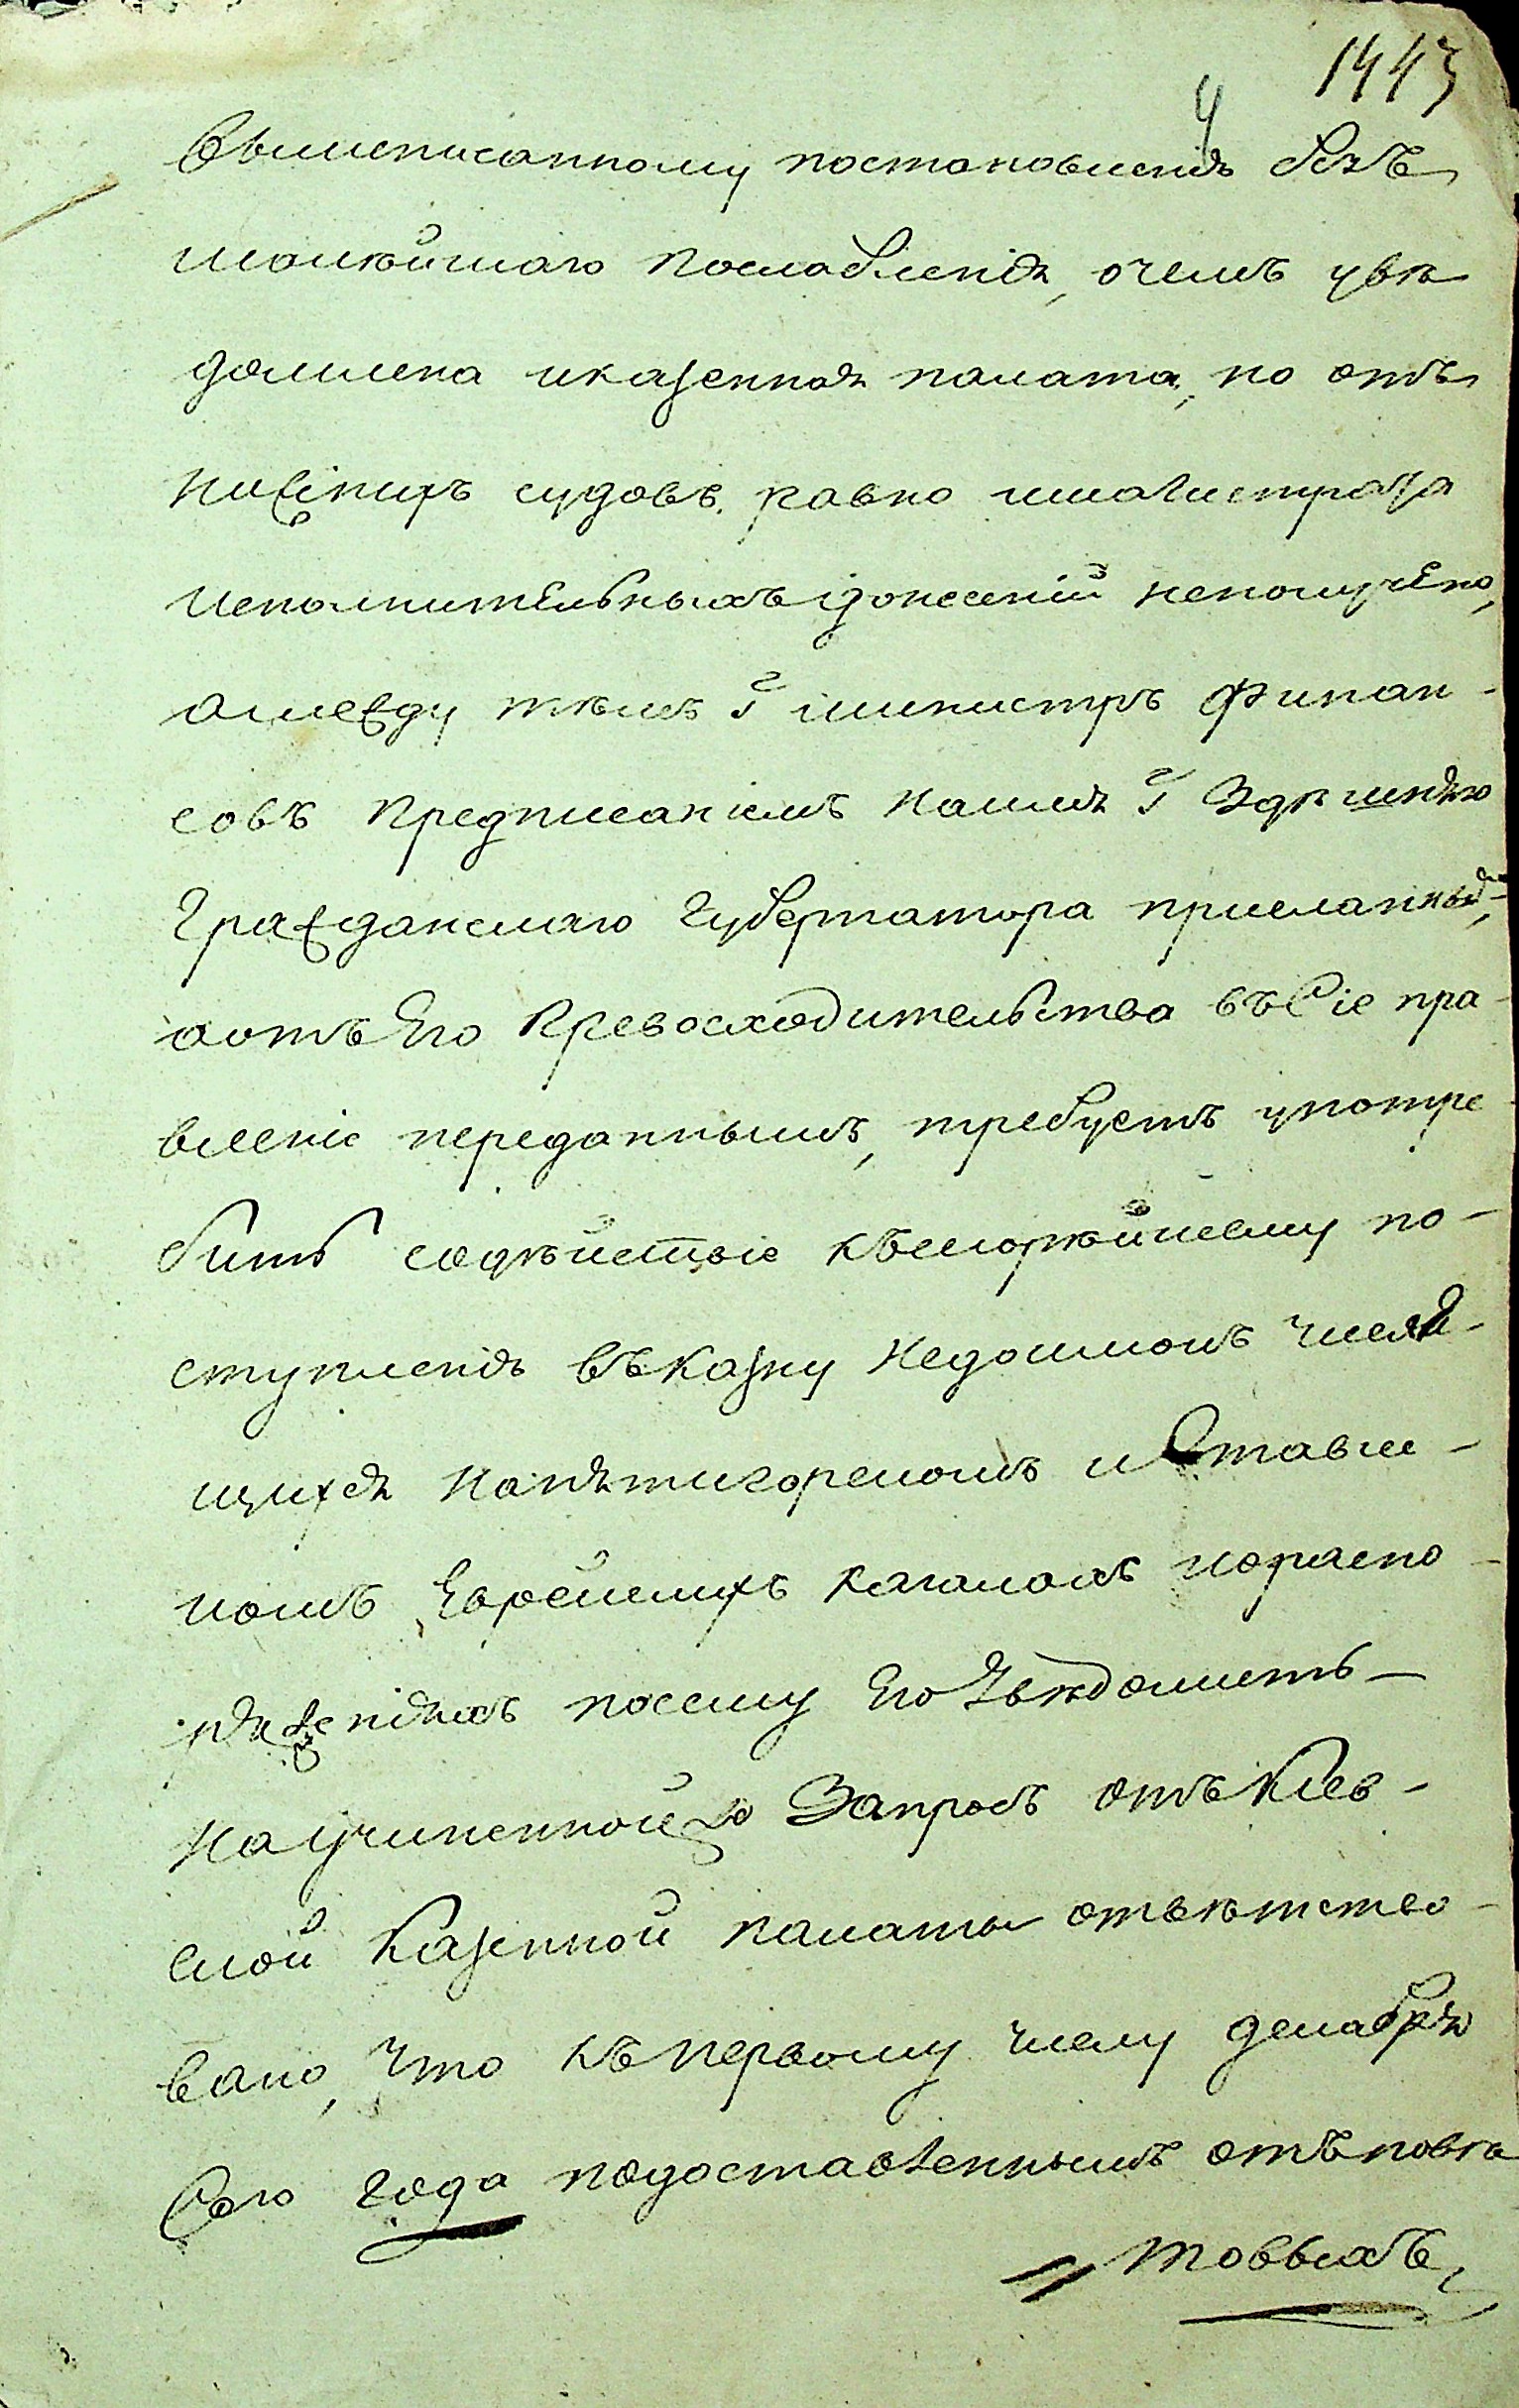 1443
4
Вышеписанному постановленія безъ
малѣйшаго послабленія, очемъ увѣ
домлена иказенная палата, но отъ
нижнихъ судовъ, равно имагистрата
исполнительныхъ донесеній неполучено,
амежду тѣмъ Г министръ Финан-
совъ предписаніемъ наимя Г Здѣшняго
Гражданскаго Губернатора присланнымъ,
аотъ Его Превосходительства въ Сіе пра-
вленіе переданнымъ, требуетъ употре-
бить содѣйствіе къскорѣйшему по-
ступленія въ Казну недоимокъ числя-
щихся напятигорскомъ и Ставис-
комъ Еврейскихъ кагалахъ и
посему Его Увѣдомить
научиненной Запросъ отъ Кіев-
ской Казенной палаты отвѣтство-
вано, что къ первому числу декабря
Сего года подоставленнымъ отъ повѣ
товыхъ